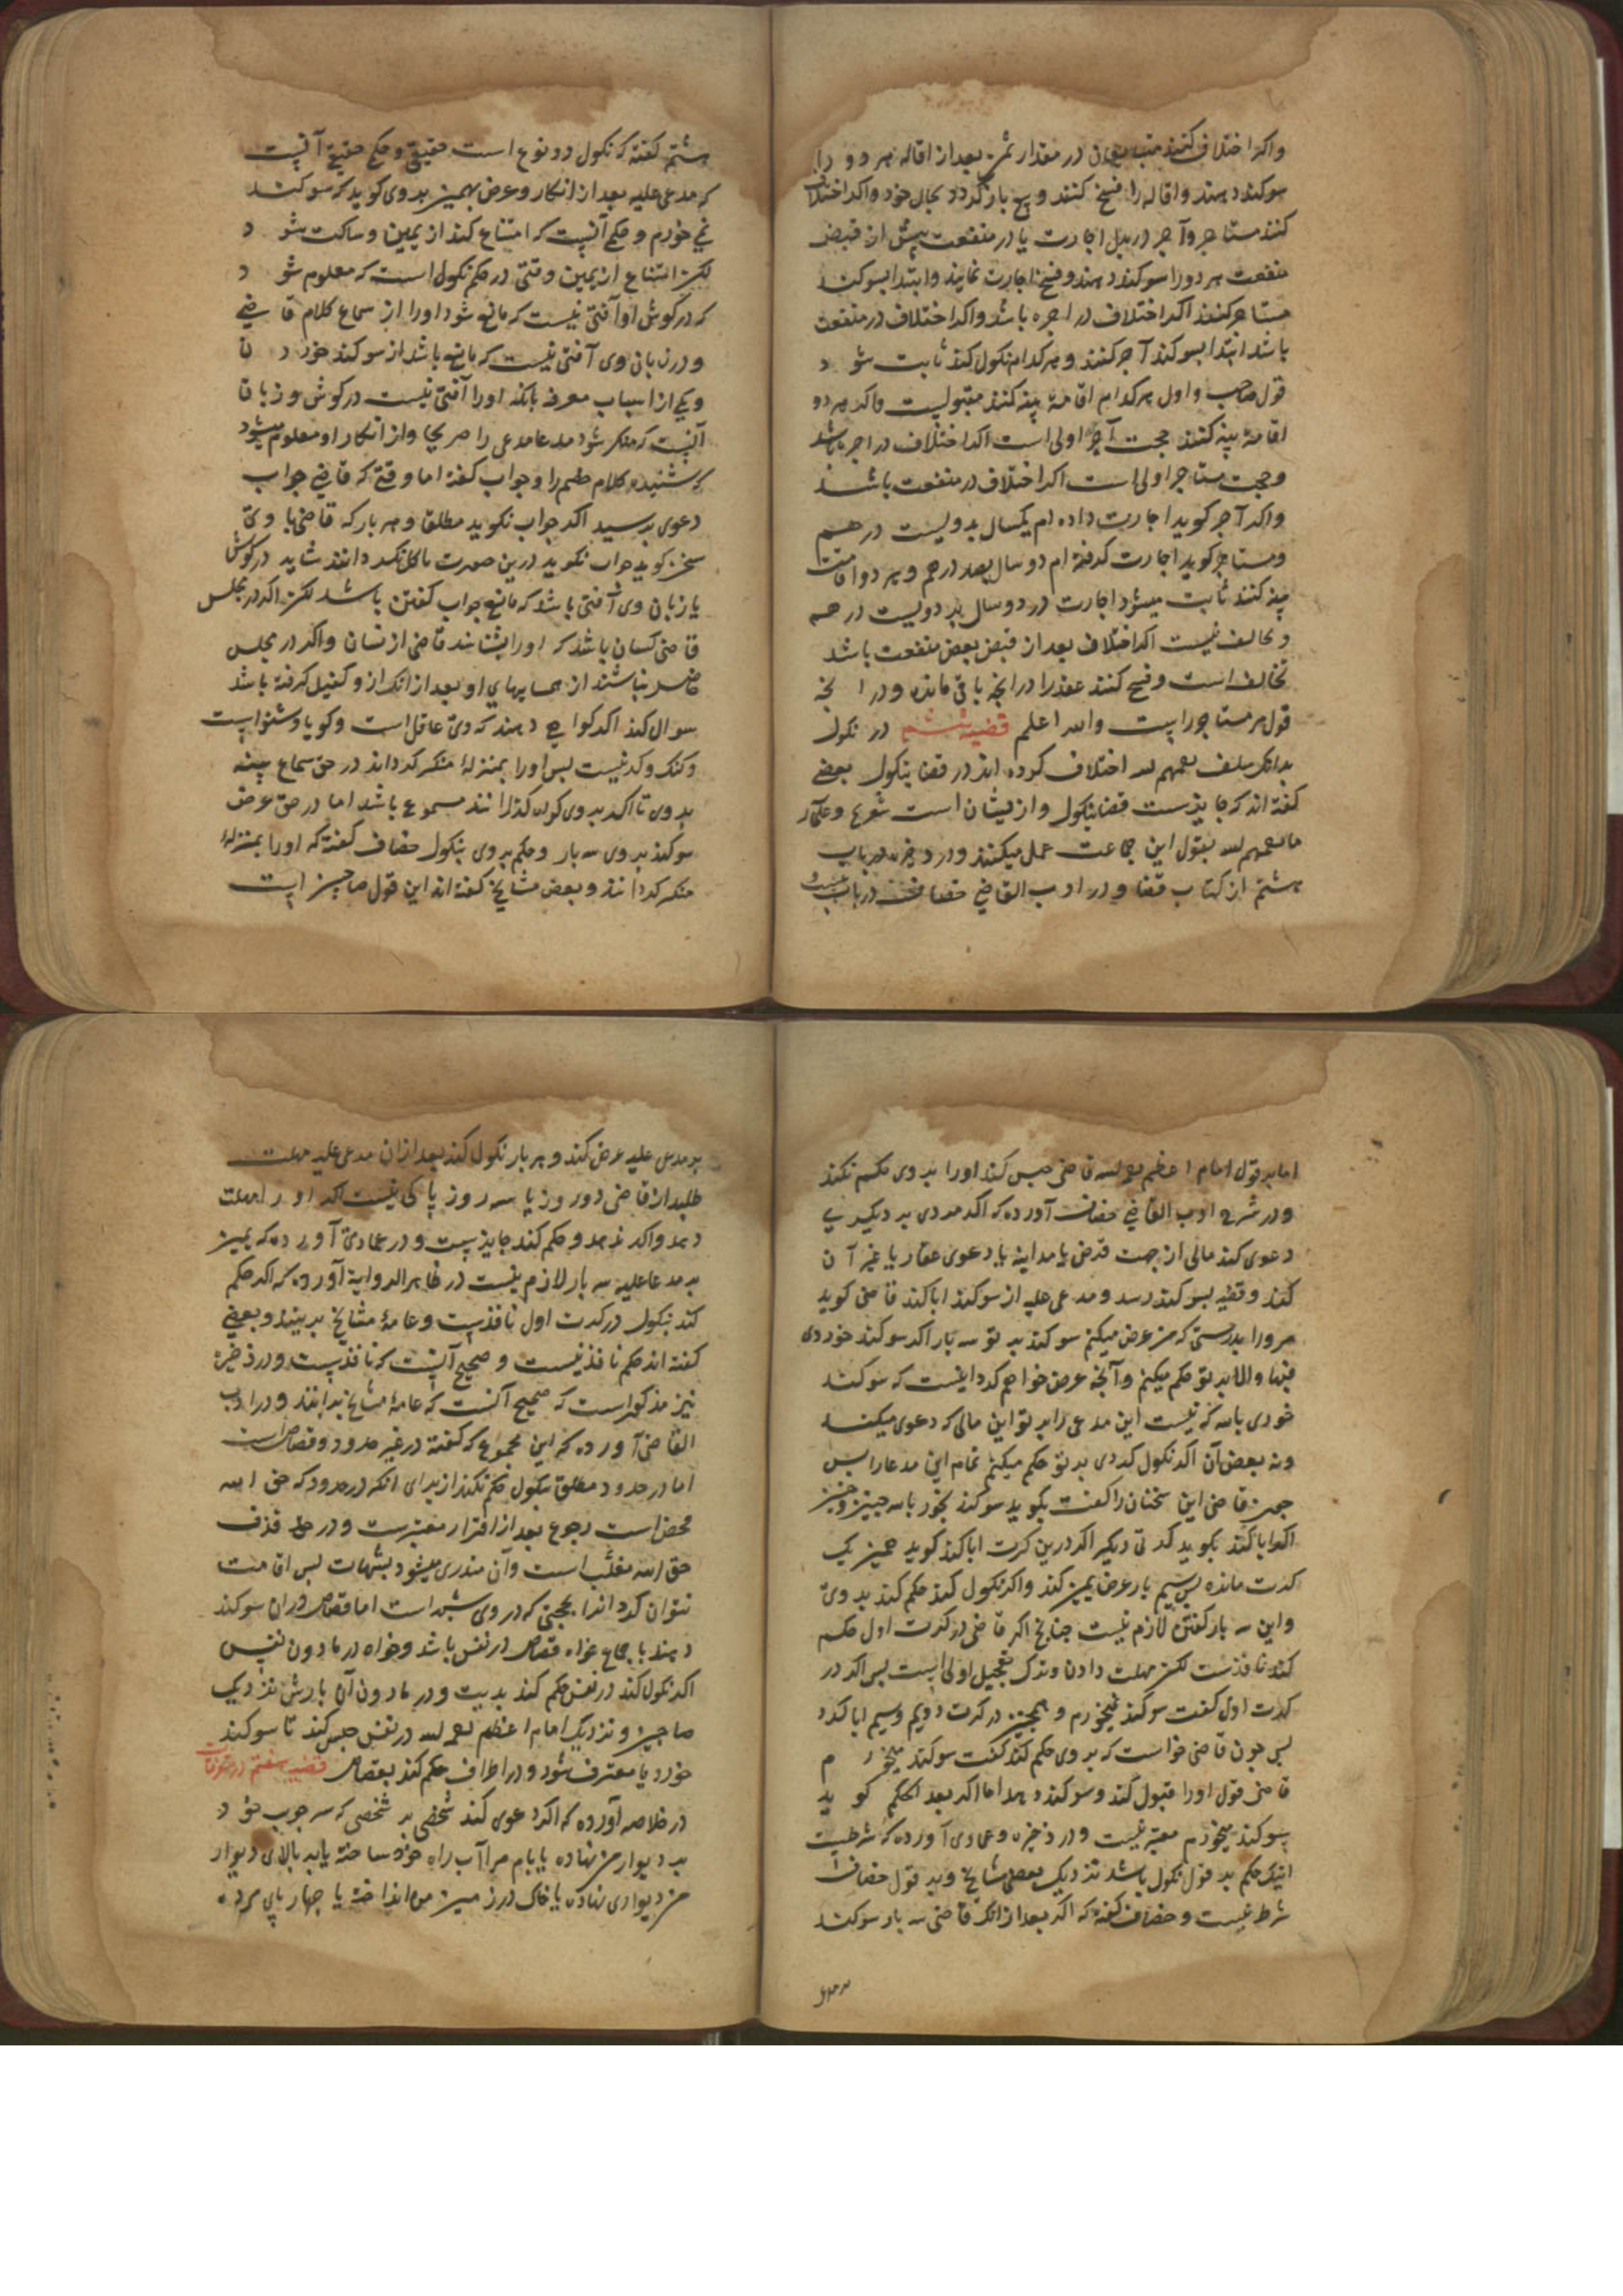 واکر اختلاف کنند متبایعان در مقدار ثمن بعد از اقاله هر دو را
سوکند دهند و اقاله را فسخ کنند و بیع باز کردد بحال خود و اکر اختلاف
کنند مستاجر و آجر در بدل اجارت یا در منفعت پیش از قبض
منفعت هر دو را سوکند دهند و فسخ اجارت نمایند و ابتدا بسوکند
مستاجر کنند اکر اختلاف در اجره باشد و اکر اختلاف در منفعت
باشد ابتدا بسوکند آجر کنند و هر کدام نکول کند ثابت شود
قول صاحب و اول هر کدام اقامهٔ بینه کنند مقبولست و اکر هر دو
اقامهٔ بینه کنند حجت آجر اولی است اکر اختلاف در اجر باشد
و حجت مستاجر اولی است اکر اختلاف در منفعت باشد
و اکر آجر کوید اجارت داده ام یکسال بدویست درهم
و مستاجر کوید اجارت کرفته ام دو سال بصد درهم و هر دو اقامت
بینه کنند ثابت میشود اجارت در دو سال بدویست درهم
و تحالف نیست اکر اختلاف بعد از قبض بعض منفعت باشد
تحالف است و فسخ کنند عقد را در آنچه باقی مانده و در آنچه
قول مر مستاجر راست والله اعلم قضیهٔ ششم در نکول
بدانکه سلف رحمهم الله اختلاف کرده اند در قضا بنکول بعضی
کفته اند که جایزست قضا بنکول و ازیشان است شریح و علمآء
ما رحمهم الله بقول این جماعت عمل میکنند و در ذخیره در باب
هشتم از کتاب قضا و در ادب القاضی خصاف در باب بیست و
هشتم کفته که نکول دو نوع است حقیقی و حکمی حقیقی آنست
که مدعی علیه بعد از انکار و عرض یمین بر وی کوید که سوکند
نمی خورم و حکمی آنست که امتناع کند از یمین و ساکت شود
لکن امتناع از یمین وقتی در حکم نکول است که معلوم شود
که در کوش او آفتی نیست که مانع شود او را از سماع کلام قاضی
و در زبان وی آفتی نیست که مانع باشد از سوکند خوردن
و یکی از اسباب معرفه بانکه او را آفتی نیست در کوش و زبان
آنست که منکر شود مدعا مدعی را صریحا و از انکار او معلوم میشود
که شنیده کلام خصم را و جواب کفته اما وقتی که قاضی جواب
دعوی پرسید اکر جواب نکوید مطلقا و هر بار که قاضی با وی
سخن کوید جواب نکوید درین صورت دانند شاید در کوش
یا زبان وی آفتی باشد که مانع جواب کفتن باشد لکن اکر در مجلس
قاضی کسان باشند که او را بشناسند قاضی ازیشان و اکر در مجلس
حاضر نباشند از همسایهای او بعد از انکه ازو کفیل کرفته باشد
سوال کند اکر کواهی دهند که وی عاقل است و کویا و شنواست
و کنک و کر نیست پس او را بمنزلهٔ منکر کردانند در حق سماع بینه
بر وی تا اکر بر وی کواه کذرانند مسموع باشد اما در حق عرض
سوکند بر وی سه بار و حکم بر وی بنکول خصاف کفته که او را بمنزلهٔ
منکر کردانند و بعض مشایخ کفته اند این قول صاحبین است
اما بر قول امام اعظم رحمه الله قاضی حبس کند او را بر وی حکم نکند
و در شرح ادب القاضی خصاف آورده که اکر مردی بر دیکری
دعوی کند مالی از جهت قرض یا مداینه یا دعوی عقار یا غیر آن
کند و قضیه بسوکند رسد و مدعی علیه از سوکند ابا کند قاضی کوید
مرو را بدرستی که من عرض میکنم سوکند بر تو سه بار اکر سوکند خوردی
فبها والا بر تو حکم میکنم و آنچه عرض خواهم کرد اینست که سوکند
خوری بالله که نیست این مدعی را بر تو این مالی که دعوی میکند
و نه بعض آن اکر نکول کردی بر تو حکم میکنم تمام این مدعا را پس
چون قاضی این سخنان را کفت بکوید سوکند بخور بالله چنین و چنین
اکر ابا کند بکوید کرتی دیکر اکر درین کرت ابا کند کوید همین یک
کرت مانده پس سیم بار عرض یمین کند و اکر نکول کند حکم کند بر وی
و این سه بار کفتن لازم نیست چنانچه اکر قاضی در کرت اول حکم
کند نافذست لکن مهلت دادن و ترک تعجیل اولی است پس اکر در
کرت اول کفت سوکند نمیخورم و همچنین در کرت دویم و سیم ابا کرد
پس چون قاضی خواست که بر وی حکم کند کفت سوکند میخورم
قاضی قول او را قبول کند و سوکند دهد اما اکر بعد الحکم کوید
سوکند میخورم معتبر نیست و در ذخیره و عمادی آورده که شرطست
حکم بر فور نکول باشد نزدیک بعضی مشایخ و بر قول خصاف
شرط نیست و خصاف کفته که اکر بعد از انکه قاضی سه بار سوکند
بر مدعی
بر مدعی علیه عرض کند و هر بار نکول کند بعد از ان مدعی علیه مهلت
طلبد از قاضی دو روز یا سه روز باکی نیست اکر او را مهلت
دهد و اکر ندهد و حکم کند جایز است و در عمادی آورده که یمین
بر مدعا علیه سه بار لازم نیست در ظاهر الروایة آورده که اکر حکم
کند بنکول در کرت اول نافذست و عامهٔ مشایخ برینند و بعضی
کفته اند حکم نافذ نیست و صحیح آنست که نافذست و در ذخیره
نیز مذکور است که صحیح آنست که عامهٔ مشایخ بدانند و در ادب
القاضی آورده که این مجموع که کفته در غیر حدود و قصاص است
اما در حدود مطلق بنکول حکم نکند از برای انکه در حدود که حق الله
محض است رجوع بعد از اقرار معتبرست و در حد قذف
حق الله مغلب است و آن مندری میشود بشبهات پس اقامت
نتوان کرد انرا بحجتی که در وی شبهه است اما قصاص در ان سوکند
دهند باجماع خواه قصاص در نفس باشد و خواه در مادون نفس
اکر نکول کند در نفس حکم کند بدیت و در مادون آن بارش نزدیک
صاحبین و نزدیک امام اعظم رحمه الله در نفس حبس کند تا سوکند
خورد یا معترف شود و در اطراف حکم کند بقصاص قضیه هفتم در متفرقات
در خلاصه آورده که اکر دعوی کند شخصی بر شخصی که سه چوب خود
بر دیوار من نهاده یا بام مرا آب راه خود ساخته یا بر بالای دیوار
من دیواری نهاده یا خاک در زمین من انداخته یا چهار پای مرده